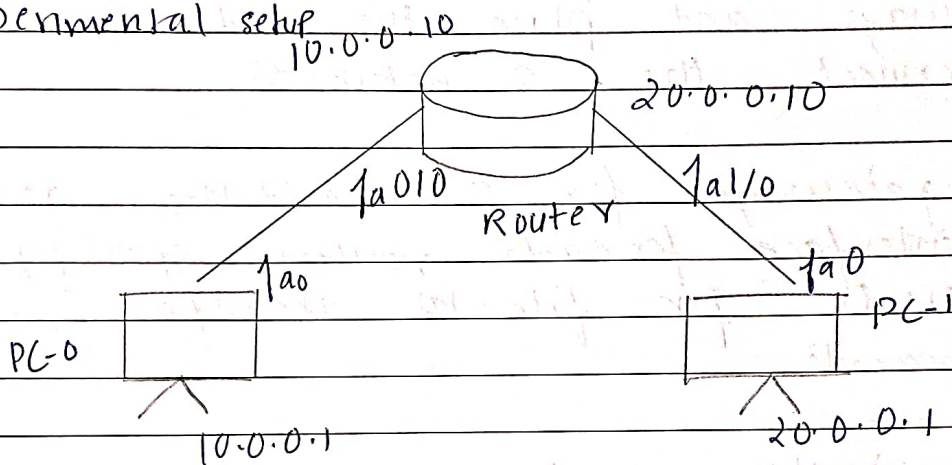 penmental setup
10.0.0.10
20.0.0.10
fa0/0
fa1/0
Router
fa0
fa0
PC-0
PC-1
10.0.0.1
20.0.0.1